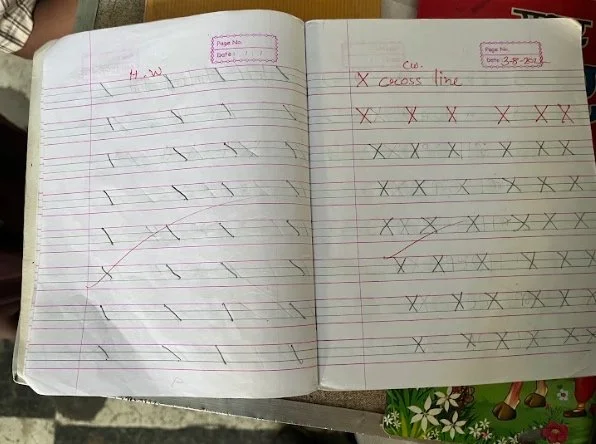 Page No.
Date:
H.W
\ \ \ \
\ \ \ \
\ \ \ \
\ \ \ \
\ \ \ \
\ \ \ \
\ \ \ \
\ \ \ \
Page No.
Date: 3-8-
C.W.
X cross line
X X X X X X
X X X X X X
X X X X X X
X X X X X X
X X X X X X
X X X X X X
X X X X X